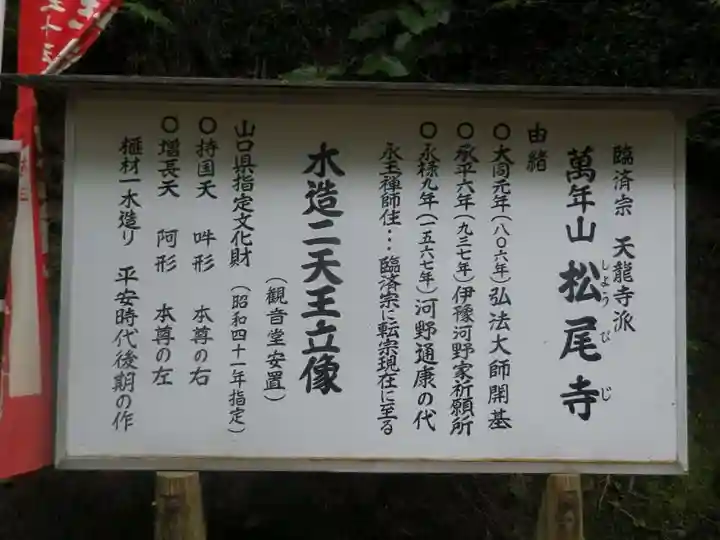 臨済宗 天龍寺派
萬年山 松尾寺
しょうびじ
由緒
〇大同元年(八〇六年)弘法大師開基
〇承平六年(九三七年)伊豫河野家祈願所
〇永禄九年(一五六七年)河野通康の代
永玉禅師住…臨済宗に転宗現在に至る
木造二天王立像
(観音堂安置)
山口県指定文化財(昭和四十一年指定)
〇持国天 吽形 本尊の右
〇増長天 阿形 本尊の左
榧材一木造り 平安時代後期の作